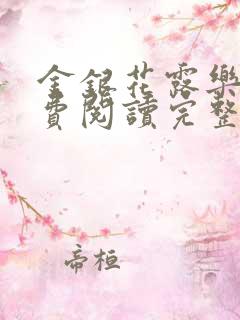 金銀花露樂
費閱讀完整
帝桓